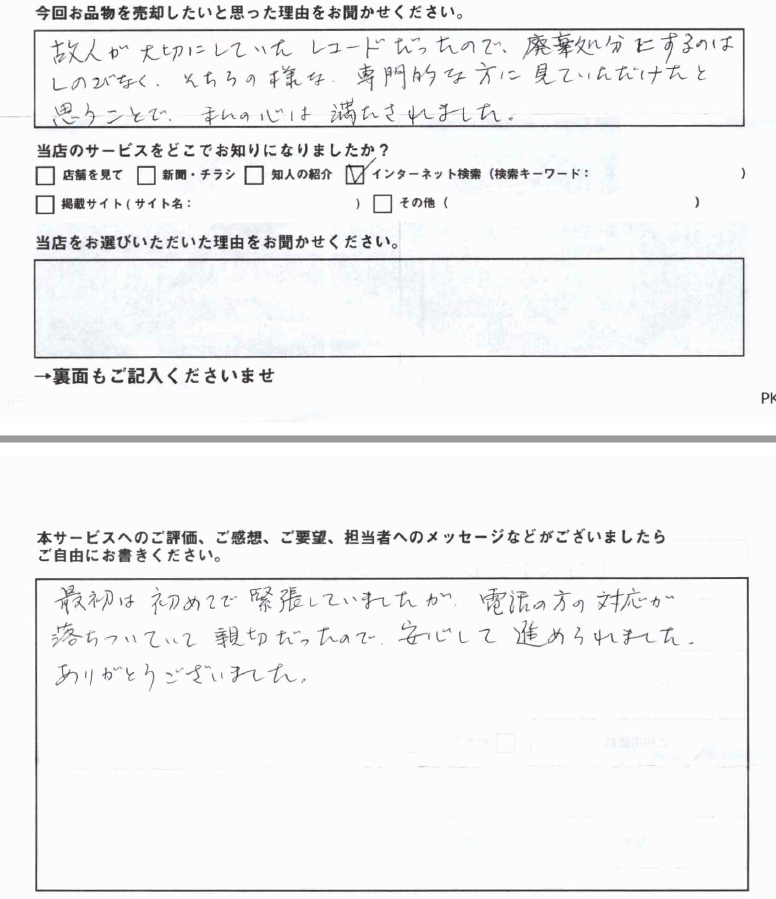 今回お品物を売却したいと思った理由をお聞かせください。
故人が大切にしていたレコードだったので、廃棄処分にするのは
しのびなく、そちらの様な、専門的な方に見ていただけたと
思うことで、私の心は満たされました。
当店のサービスをどこでお知りになりましたか？
□ 店舗を見て □ 新聞・チラシ □ 知人の紹介 ☑ インターネット検索（検索キーワード： ）
□ 掲載サイト（サイト名： ） □ その他（ ）
当店をお選びいただいた理由をお聞かせください。
→裏面もご記入くださいませ
PK
本サービスへのご評価、ご感想、ご要望、担当者へのメッセージなどがございましたら
ご自由にお書きください。
最初は初めてで緊張していましたが、電話の方の対応が
落ちついていて親切だったので、安心して進められました。
ありがとうございました。